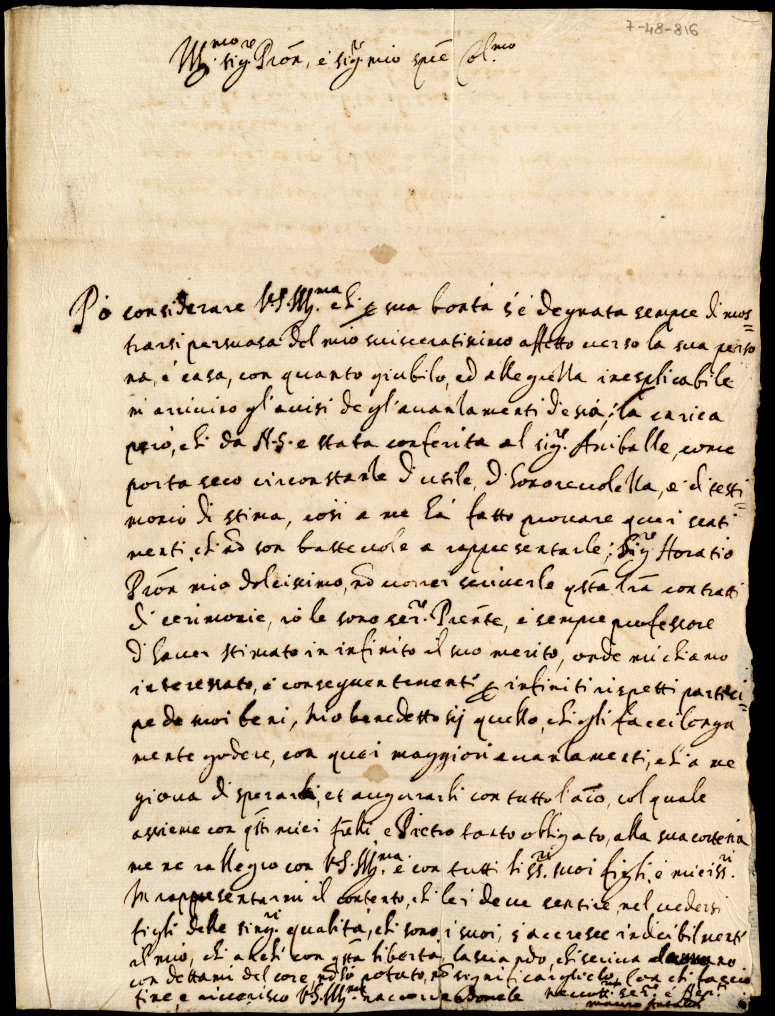 7-48-816
Ill.mo sig.re Prōn, e sig.re mio sp̄e Col.mo
Pò considerare V.S. Ill.ma chi p sua bontà s'è degnata sempre di mos=
trarsi persuasa del mio suisceratissimo affetto verso la sua perso
na, e casa, con quanto giubilo, ed allegrezza inesplicabile
m'arrivino gl'avisi degl'avanzamenti d'essa; la carica
però, chi da N.S. e stata conferita al sig.re Aniballe, come
porta seco circonstanze d'utile, d'honorevolezza, e di testi=
monio di stima, così a me hà fatto provare quei senti
menti, chi nō son bastevole a rappresentarle; Sig.re Horatio
Prōn mio dolcissimo, nō vorrei scriverle q̄sta lrā con tratti
di cerimonie, io le sono ser.re Prēnte, e sempre professore
d'haver stimato in infinito il suo merito, onde mi chiamo
interessato, e conseguentementi p infiniti rispetti parteci=
pe de suoi beni, Dio benedetto sij quello, chi gli facci longa
mente godere, con quei maggiori avanzamenti, chi a me
giova di sperarli, et augurarli con tutto l'aīo, col quale
assieme con q̄sti miei frēlli e Pietro tanto obligato, alla sua cortesia
me ne rallegro con V.S. Ill.ma, e con tutti li ss.ri suoi figli, e miei ss.ri
In rappresentarmi il contento, chi lei deve sentire, nel vedersi
figli delle sing.ri qualità, chi sono, i suoi, s'accresce indicibilmenti
il mio, chi anchi con q̄sta libertà, lasciando, chi scriva la mano
con dettami del core, nō hò potuto, nō significarglielo, con chi faccio
fine, e riverisco V.S. Ill.ma raccordandomele